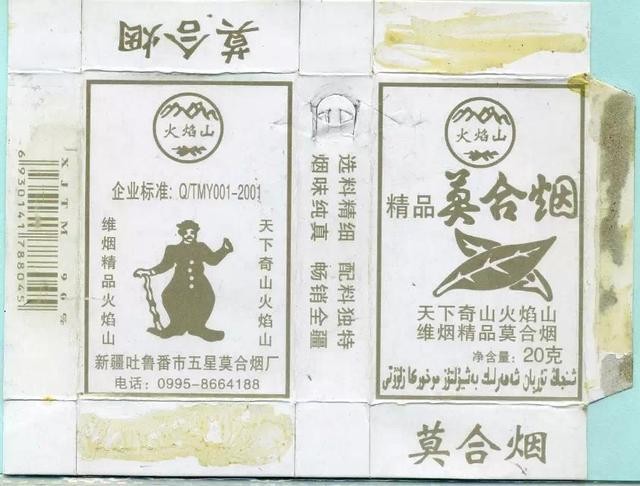 莫合烟
火焰山
企业标准: Q/TMY001-2001
天下奇山火焰山
维烟精品火焰山
新疆吐鲁番市五星莫合烟厂
电话: 0995-8664188
XJTM
6930141788045
选料精细 配料独特
烟味纯真 畅销全疆
火焰山
精品 莫合烟
天下奇山火焰山
维烟精品莫合烟
净含量: 20克
شىنجاڭ تۇرپان شەھەرلىك بەشيۇلتۇز موخوركا زاۋۇتى
莫合烟